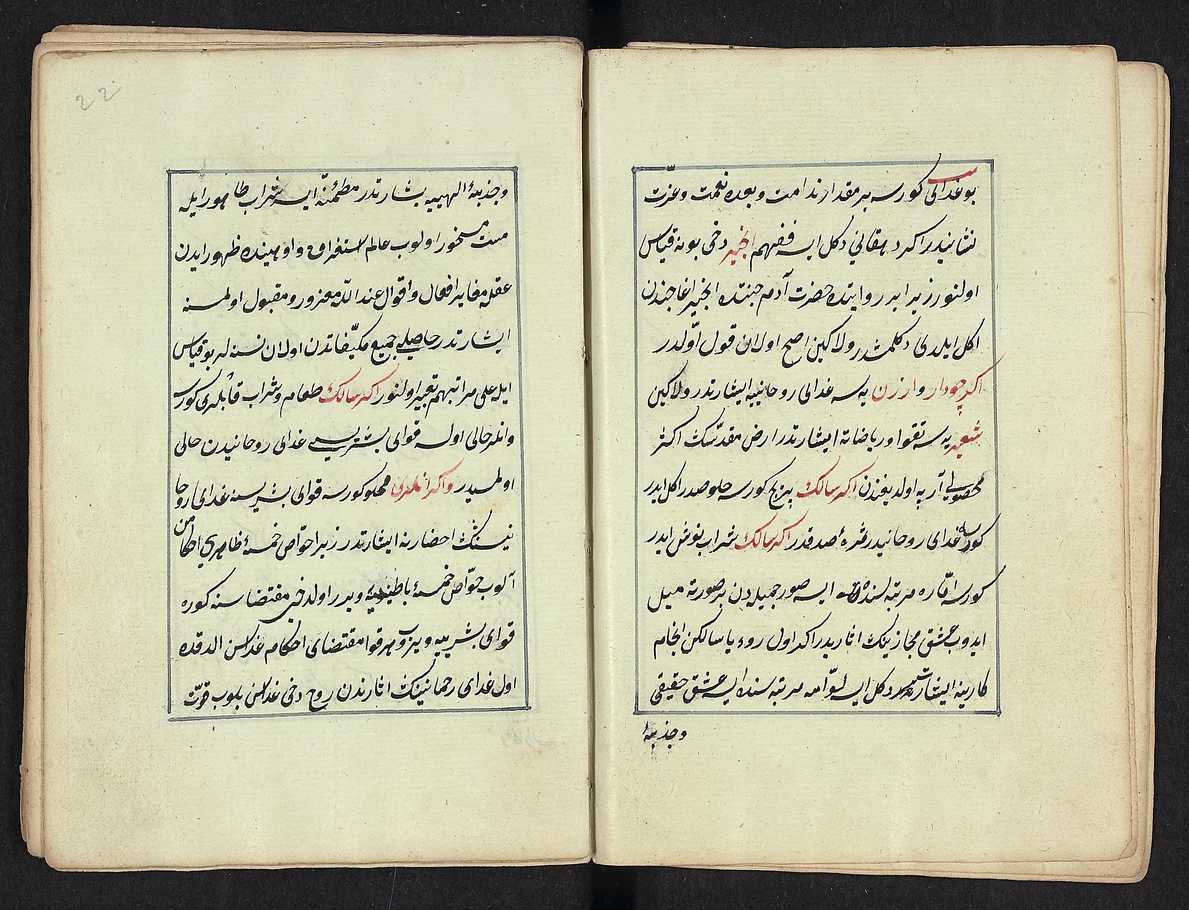 بوغدای كورسه بر مقدار ندامت و بعده نعمت و عزّت
نشانیدر اكر دهقانی دكل ایسه فافهم انجیر دخی بوكه قیاس
اولنور زیرا بر روایتده حضرت آدم جنتده انجیر اغاجندن
اكل ایلدی دكلمشدر ولاكین اصح اولان قول اوّلدر
اكر چودار و ارزن یه سه غدای روحانیه ایشارتدر ولاكین
شعیر یه سه تقوا و ریاضاته ایشارتدر ارض مقدّسك اكثر
محصولی آرپه اولدیغندن اكر سالك پرنج كورسه حلو صدر اكل ایدر
كورسه غدای روحانیدر ثمرهٔ صدقدر اكر سالك شراب نوش ایدر
كورسه امّاره مرتبه لسنده ایسه صور جمیله دن بر صورته میل
ایدوب عشق مجازینك اثاریدر اكا اول رویا سالكن انجام
كارینه ایشارتدر دكل ایسه لوّامه مرتبه سنده ایسه عشق حقیقی
و جذبهٔ
و جذبهٔ الهییه یشارتدر مطمئنّه ایسه شراب طهور ایله
مست مخمور اولوب عالم استغراق و اوهینده ظهور ایدن
عقله مغایر افعال و اقوال عند اللّه معزور و مقبول اولمسنه
ایشارتدر حاصلی جمیع مكیّفاتدن اولان نسنه لر بو قیاس
ایله علی مراتبهم تعبیر اولنور اكر سالك طعام و شراب قابلری كورسه
و انلر خالی اولسه قوای بشریه سی غدای روحانیدن خالی
اولمسیدر و اكر انلری مملو كورسه قوای بشریسنه غدای روحا
نینك احضارینه ایشارتدر زیرا حواص خمسهٔ ظاهری احكامن
آلوب حوّاص خمسهٔ باطنییه ویرر اولدخی مقتضاسنه كوره
قوای بشرییه ویروب هر قوا مقتضای احكامه غداسن الدقده
اول غدای رحمانینك اثارندن روح دخی غداسن بلوب قوّت
22